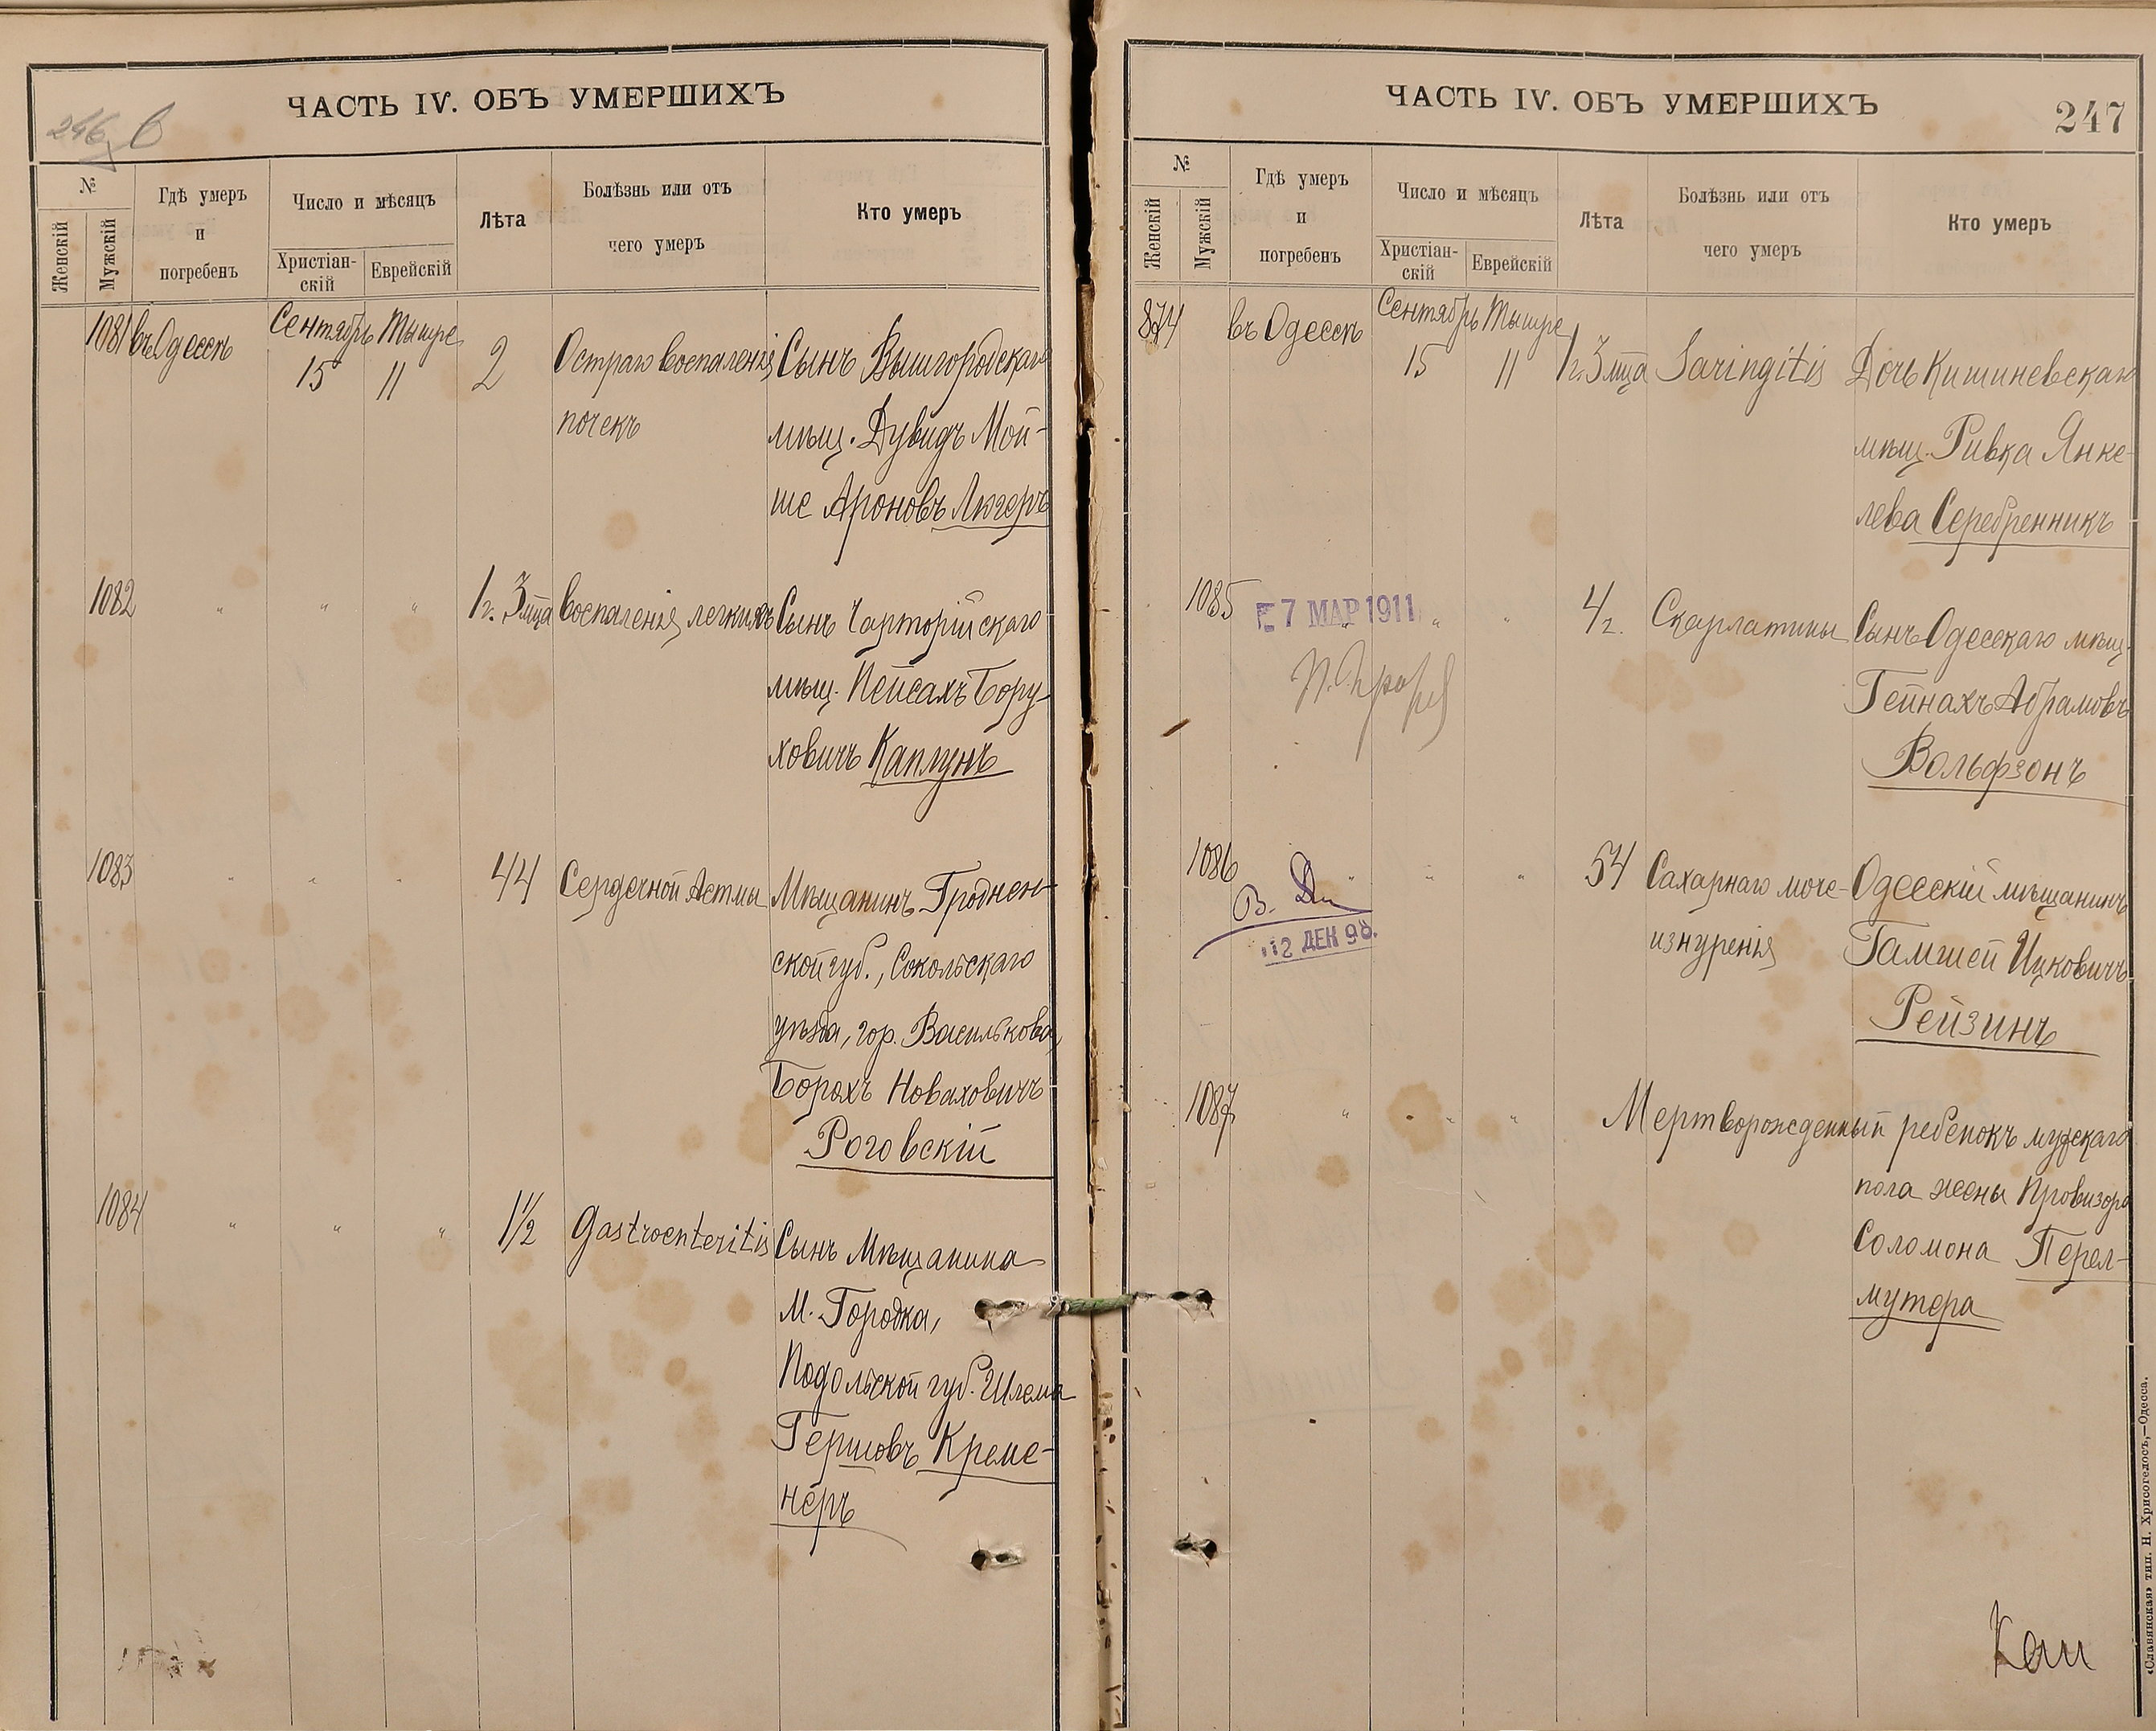 ЧАСТЬ IV. ОБЪ УМЕРШИХЪ
246
№
Женскій
Мужскій
Гдѣ умеръ
и
погребенъ
Число и мѣсяцъ
Христіан-
скій
Еврейскій
Лѣта
Болѣзнь или отъ
чего умеръ
Кто умеръ
1081 въ Одессѣ Сентябрь Тишре
15 11 2 Остраго воспаленія Сынъ Вышгородскаго
почекъ мѣщ. Дувидъ Мой-
ше Ароновъ Лягеръ
1082 " " " 1 г. 3 мца Воспаленія легкихъ Сынъ Чарторійскаго
мѣщ. Пейсахъ Бору-
ховичъ Каплунъ
1083 " " " 44 Сердечной Астмы Мѣщанинъ Гроднен-
ской губ., Сокольскаго
уѣзда, гор. Василькова,
Борохъ Новаховичъ
Роговскій
1084 " " " 1½ Gastroenteritis Сынъ Мѣщанина
М. Городка,
Подольской губ. Шлема
Гершовъ Креме-
неръ
ЧАСТЬ IV. ОБЪ УМЕРШИХЪ
247
№
Женскій
Мужскій
Гдѣ умеръ
и
погребенъ
Число и мѣсяцъ
Христіан-
скій
Еврейскій
Лѣта
Болѣзнь или отъ
чего умеръ
Кто умеръ
874 въ Одессѣ Сентябрь Тишре
15 11 1 г. 3 мца Laringitis Дочь Кишиневскаго
мѣщ. Ривка Янке-
лева Серебренникъ
1085 7 МАР 1911 " " 4 г. Скарлатины Сынъ Одесскаго мѣщ.
Гейнахъ Абрамовъ
Вольфзонъ
1086 " " " 54 Сахарнаго моче- Одесскій мѣщанинъ
12 ДЕК 98. изнуренія Гамшей Ицковичъ
Рейзинъ
1087 " " " Мертворожденный ребенокъ мужскаго
пола жены Провизора
Соломона Перел-
мутера
«Славянская» тип. Н. Хрисогелосъ,—Одесса.